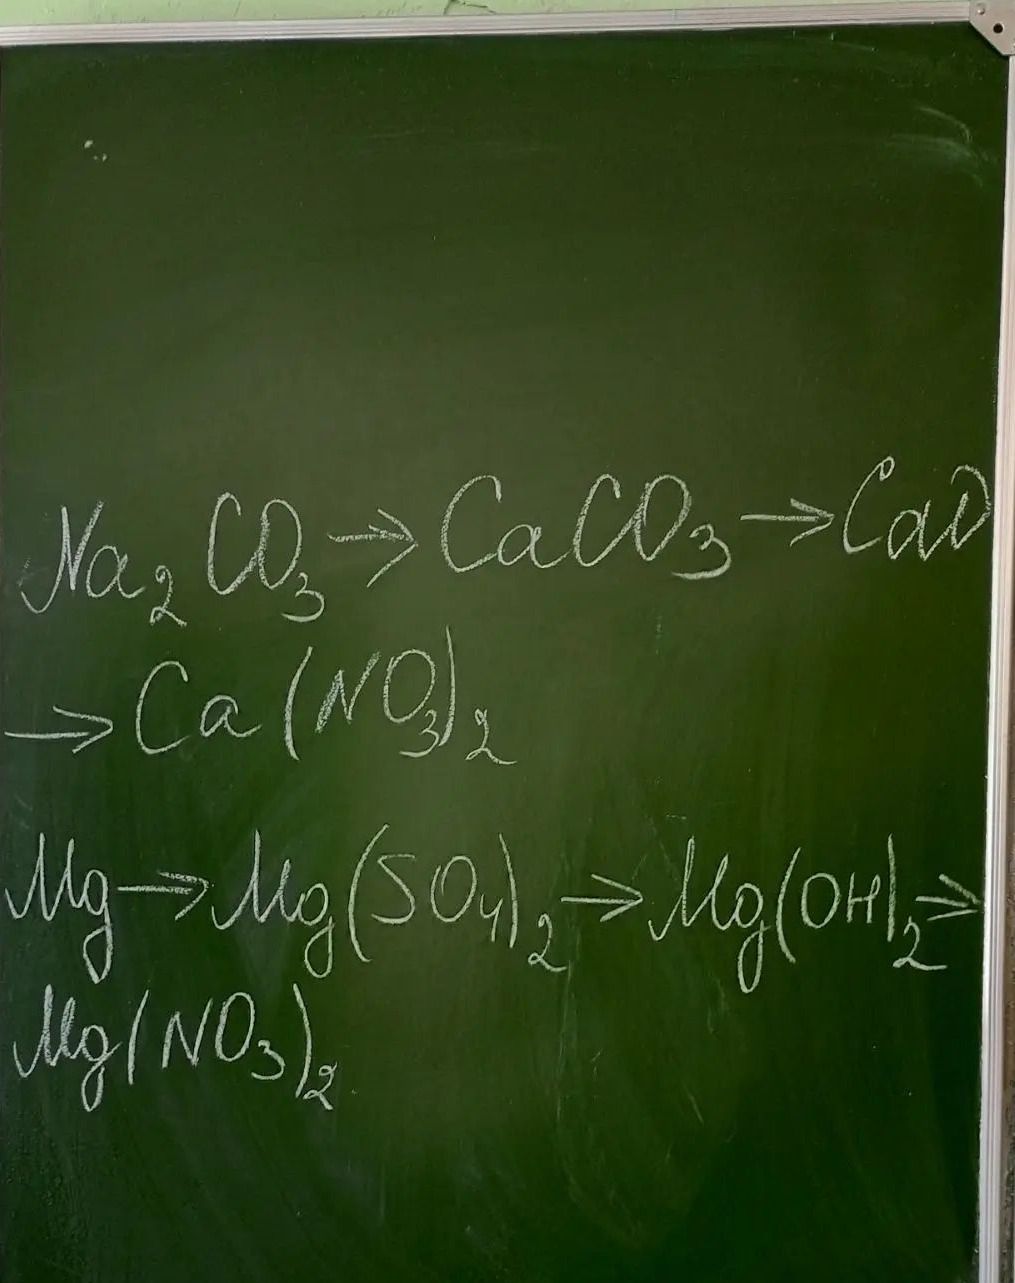 Na₂CO₃ → CaCO₃ → CaO
→ Ca(NO₃)₂
Mg → Mg(SO₄)₂ → Mg(OH)₂ →
Mg(NO₃)₂